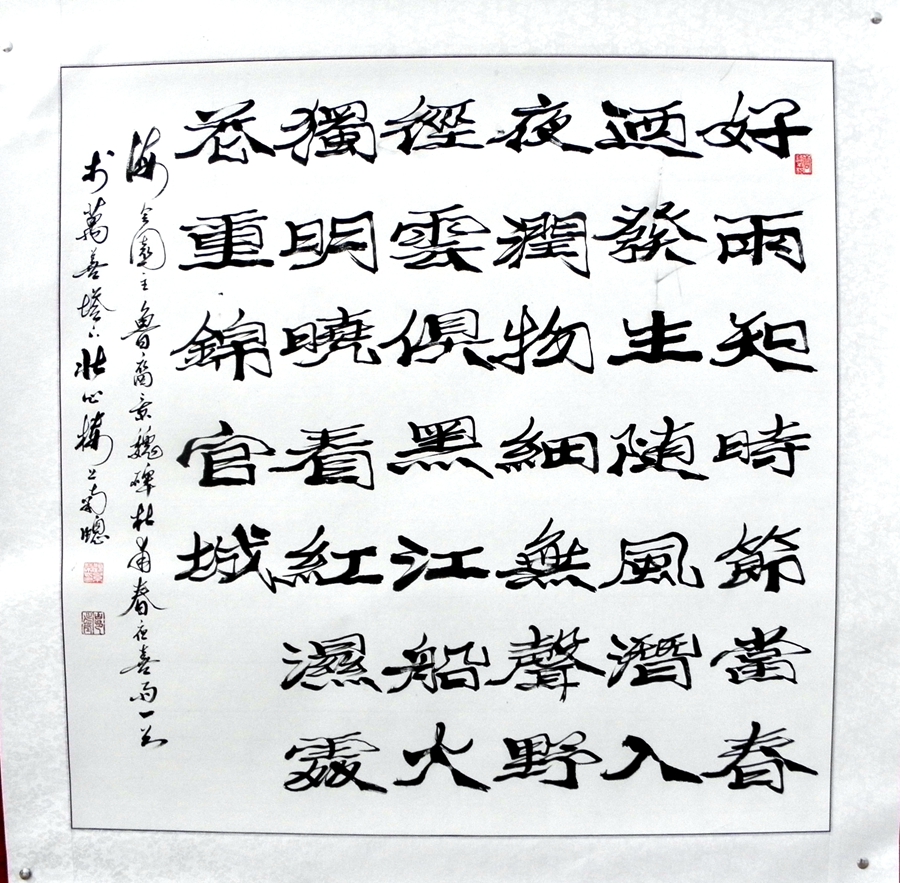 好雨知時節當春
迺發生随風潛入
夜潤物細無聲野
徑雲俱黑江船火
獨明曉看紅濕處
花重錦官城
海 主魯裔 魏碑杜甫春夜喜雨一首
於萬善塔下壮心樓之南牕